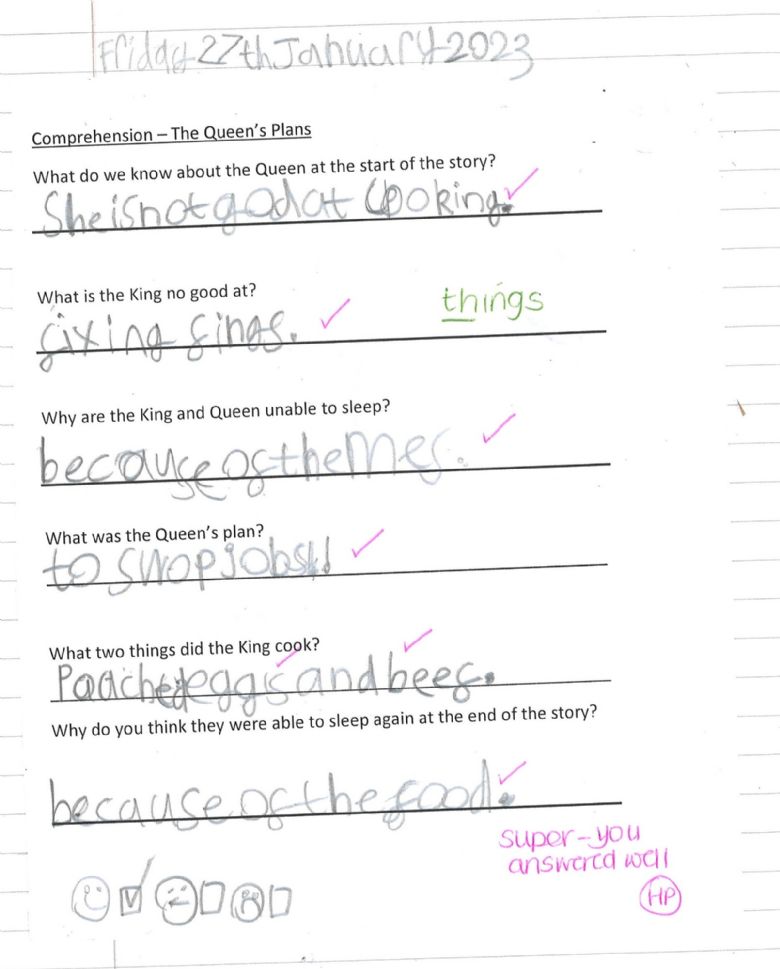 Friday 27th January 2023
Comprehension – The Queen's Plans
What do we know about the Queen at the start of the story?
She is not god at Cooking.
What is the King no good at?
things
fixing fings.
Why are the King and Queen unable to sleep?
because of the Mes.
What was the Queen's plan?
to swop jobs!
What two things did the King cook?
Poached eggs and beef.
Why do you think they were able to sleep again at the end of the story?
because of the food.
super-you
answered well
HP